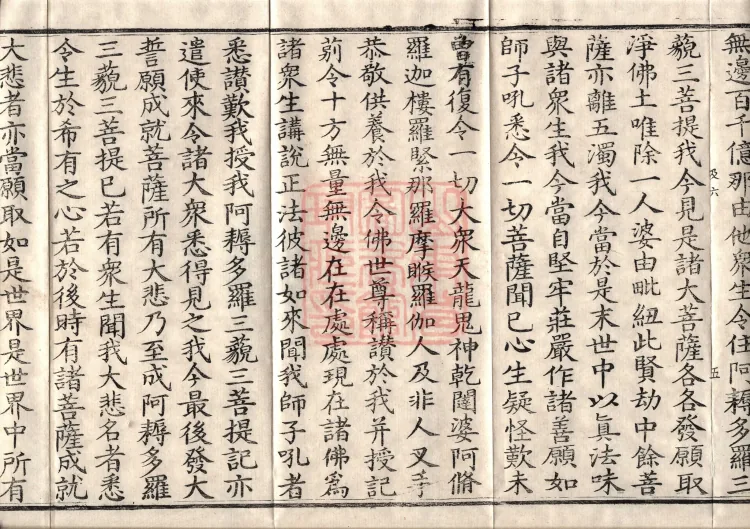 無邊百千億那由他衆生令住阿耨多羅三
藐三菩提我今見是諸大菩薩各各發願取
淨佛土唯除一人婆由毗紐此賢劫中餘善
薩亦離五濁我今當於是末世中以眞法味
與諸衆生我今當自堅牢莊嚴作諸善願如
師子吼悉令一切菩薩聞已心生疑怪歎未
曾有復令一切大衆天龍鬼神乾闥婆阿脩
羅迦樓羅緊那羅摩睺羅伽人及非人叉手
恭敬供養於我令佛世尊稱讃於我并授記
莂令十方無量無邊在在處處現在諸佛爲
諸衆生講說正法彼諸如來聞我師子吼者
悉讃歎我授我阿耨多羅三藐三菩提記亦
遣使來令諸大衆悉得見之我今最後發大
誓願成就菩薩所有大悲乃至成阿耨多羅
三藐三菩提已若有衆生聞我大悲名者悉
令生於希有之心若於後時有諸菩薩成就
大悲者亦當願取如是世界是世界中所有
及六
五